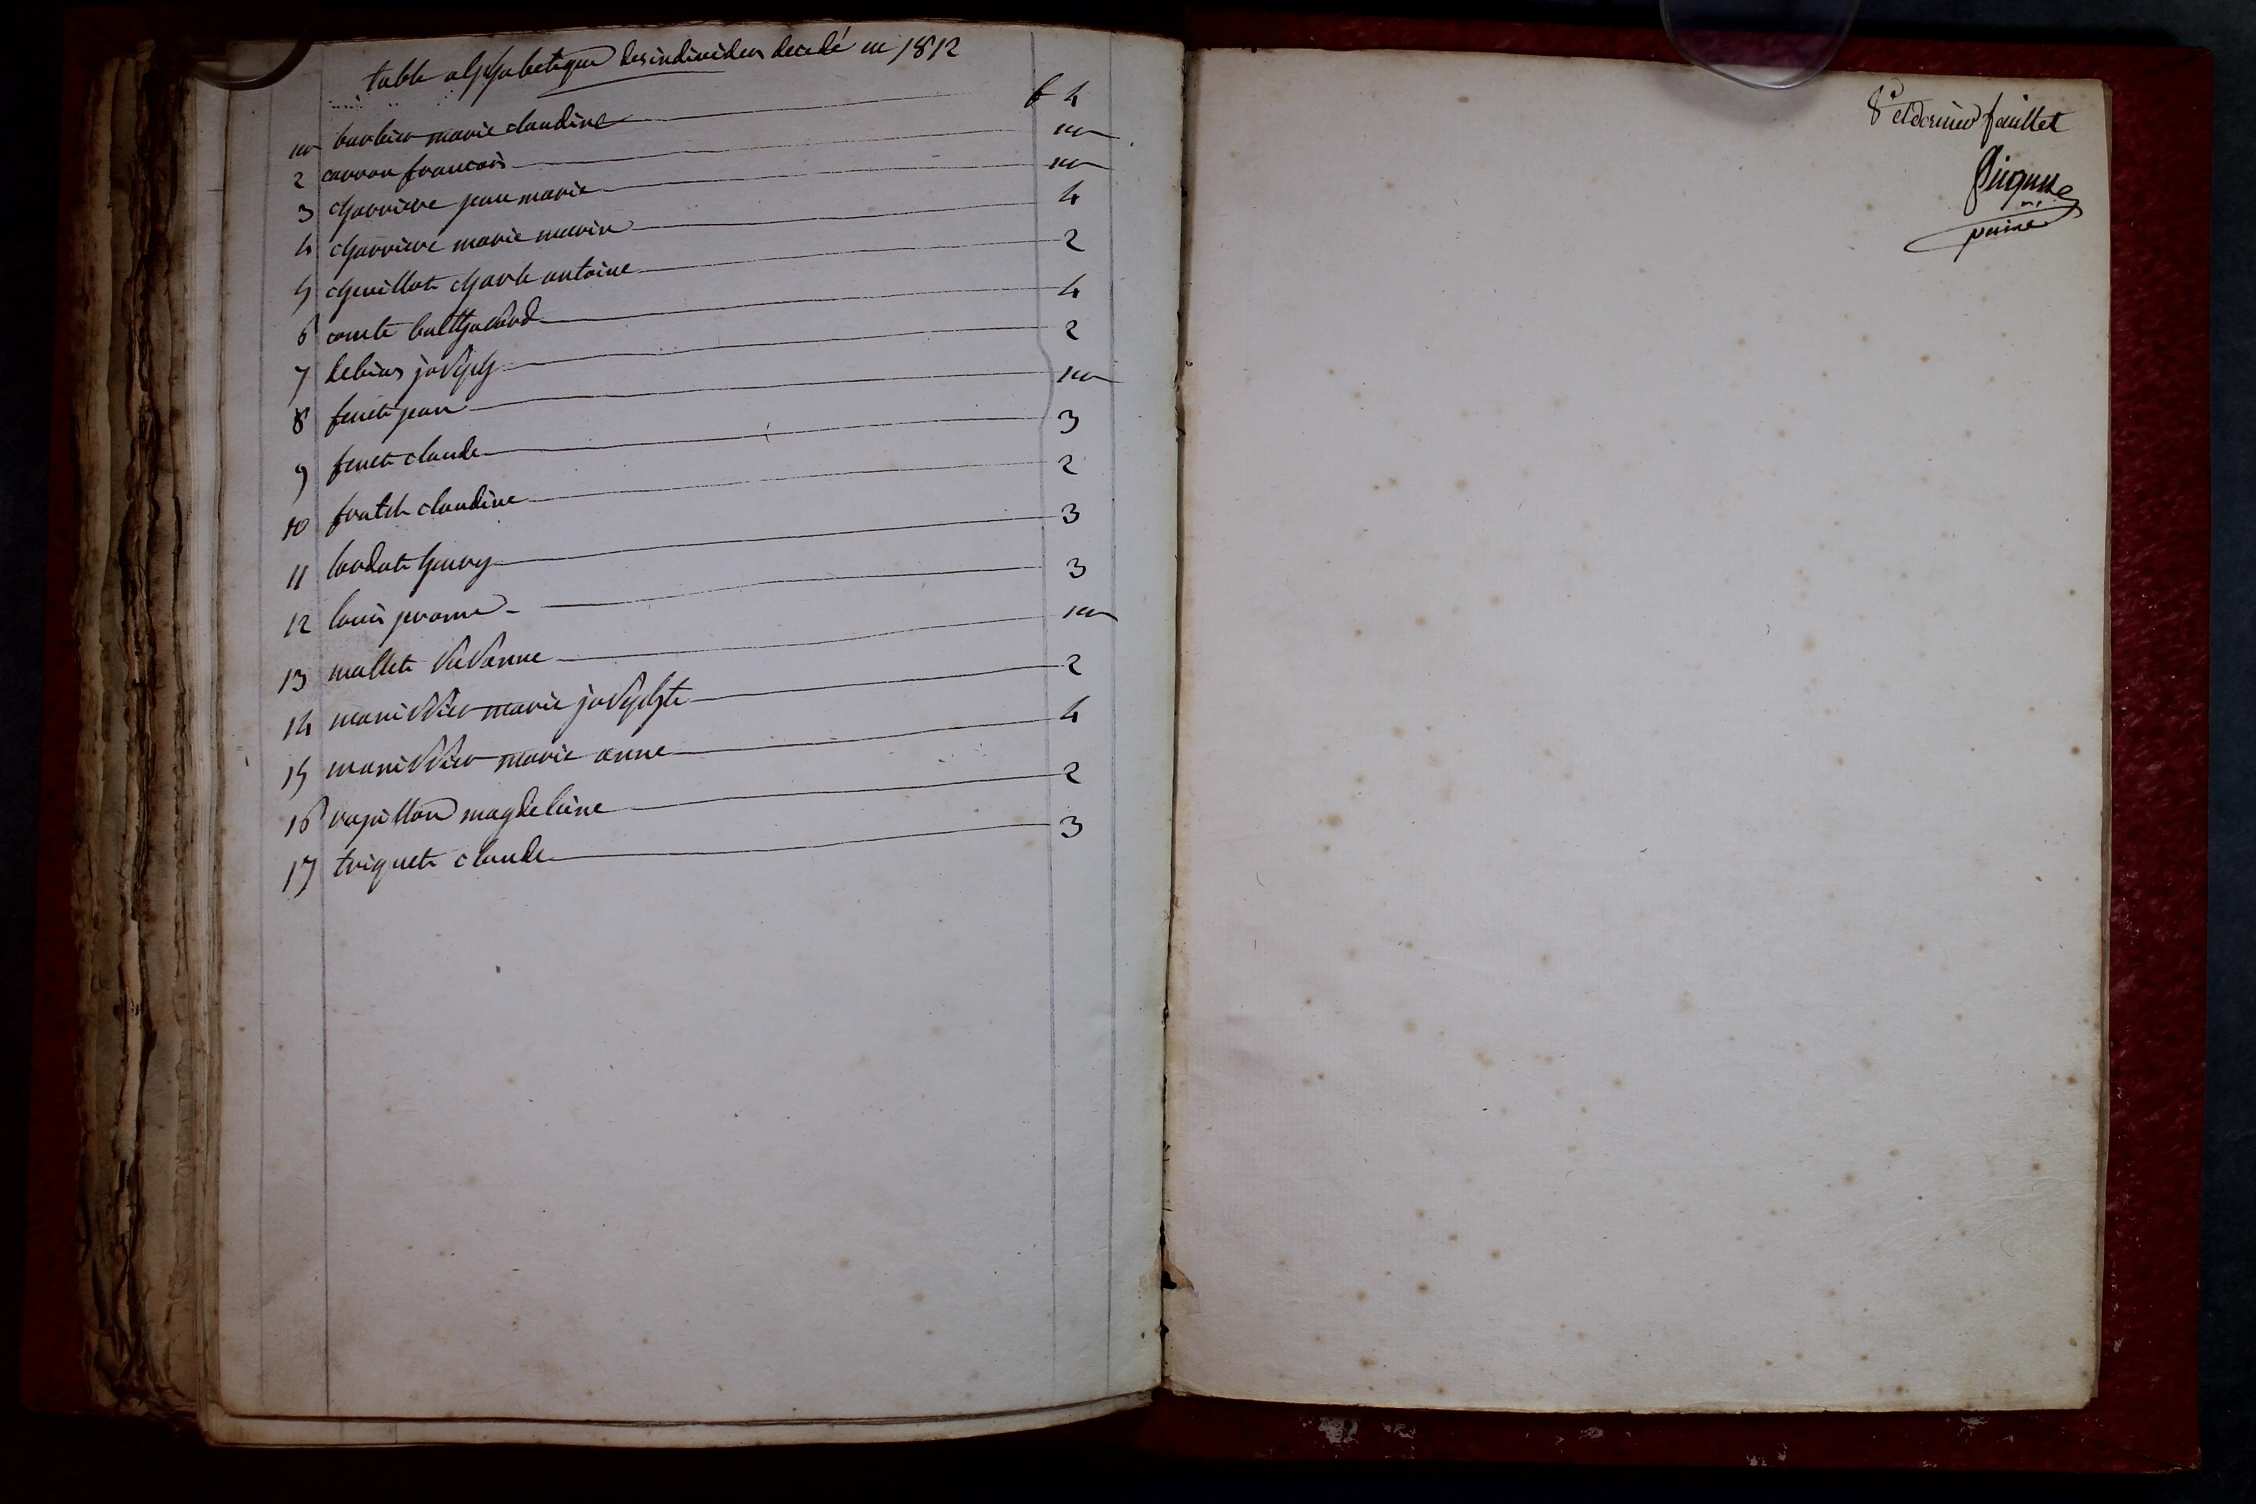 table alphabetique des individus decedé en 1812
1er barbier marie claudine f 4
2 carron francois 1er
3 charriere jean marie 1er
4 charriere marie marin 4
5 chevillot charle antoine 2
6 comte balthazard 4
7 debias joseph 2
8 fenet jean 1er
9 fenet claude 3
10 fratch claudine 2
11 lardat henry 3
12 louis jerome 3
13 mallet susanne 1er
14 manissier marie josephte 2
15 manissier marie anne 4
16 rapillon magdeleine 2
17 triquet claude 3
8e et dernier feuillet